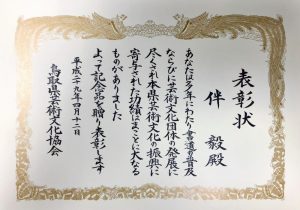 表彰状
伴 毅殿
あなたは多年にわたり書道の普及
ならびに芸術文化団体の発展に
尽くされ本県芸術文化の振興に
寄与された功績はまことに大なる
ものがありました
よって記念品を贈り表彰します
平成二十九年四月十二日
鳥取県芸術文化協会